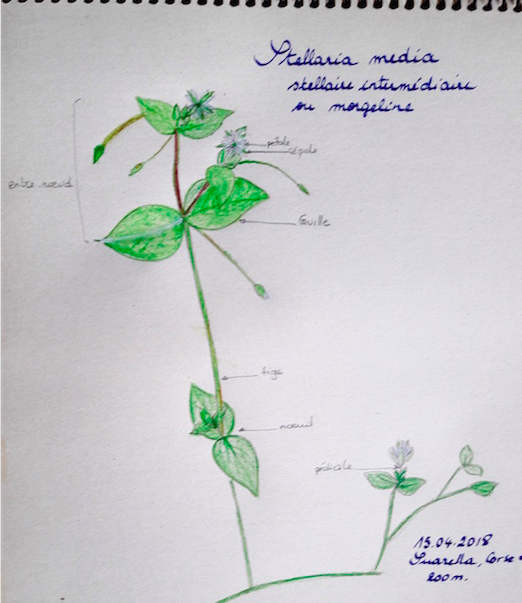 Stellaria media
stellaire intermédiaire
ou morgeline
pétale
sépale
entre noeud
feuille
tige
noeud
pédicelle
15.04.2018
Suarella, Corse
200m.